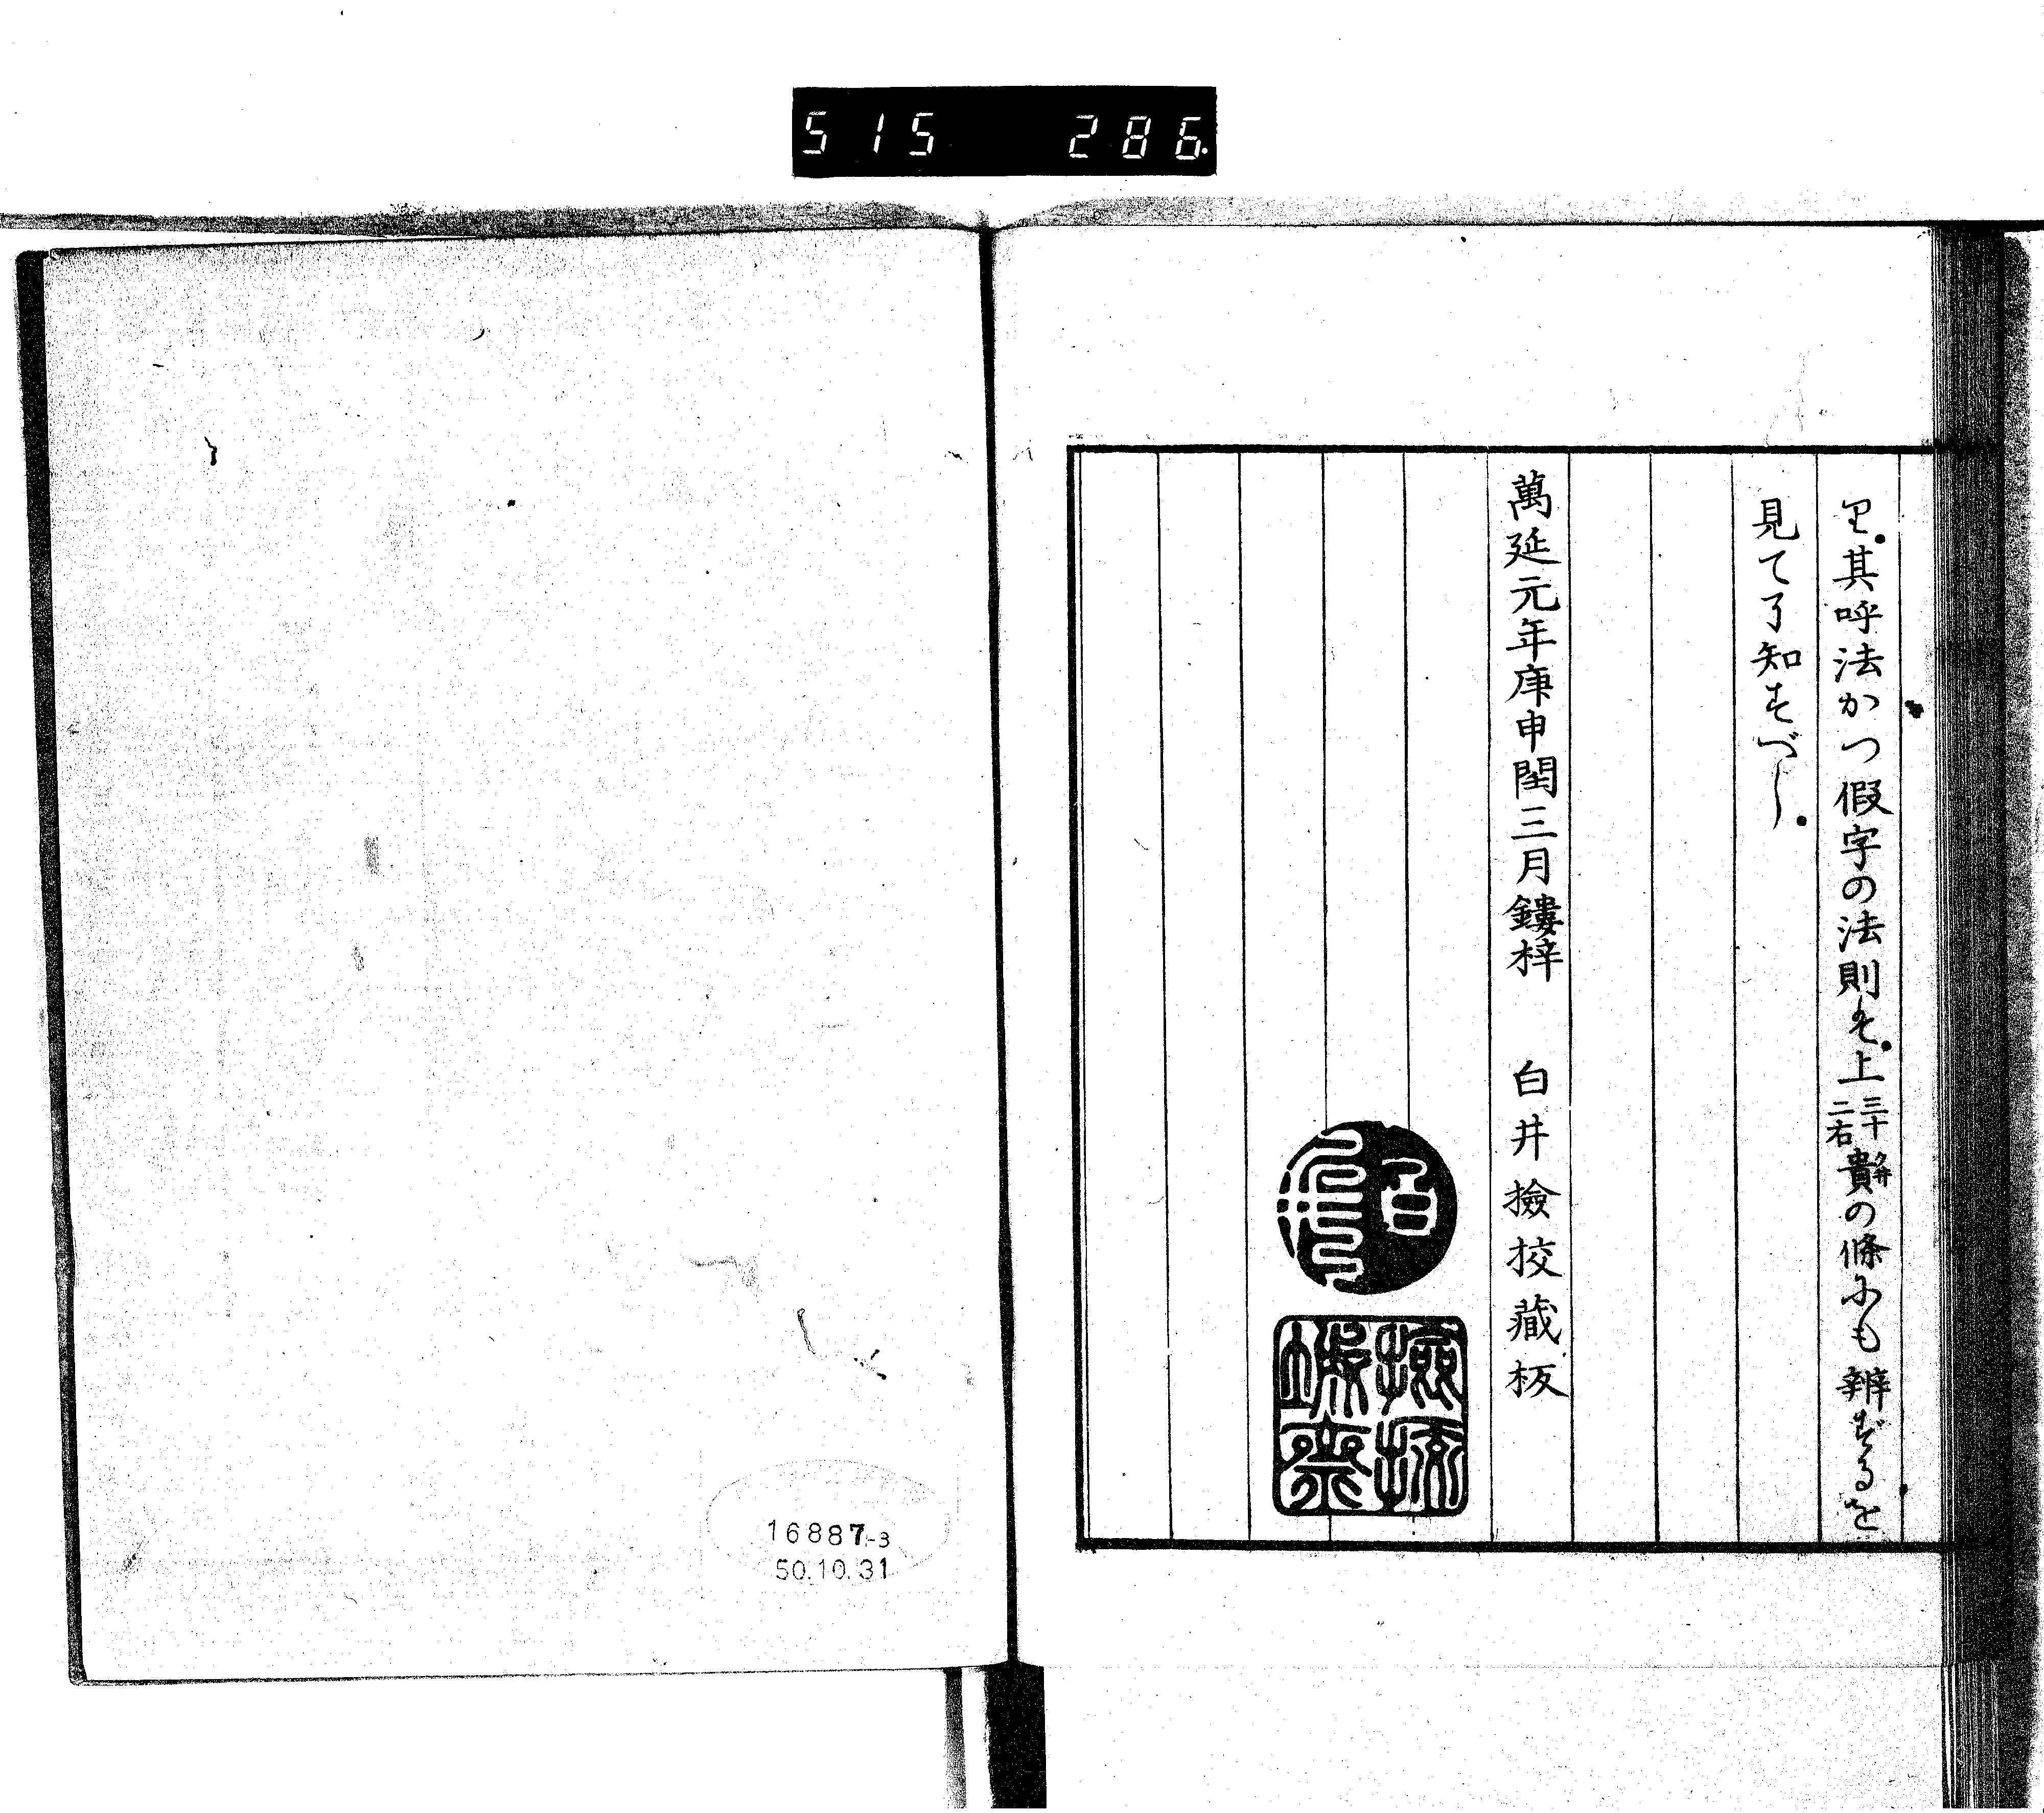 515 286
り。其呼法かつ假字の法則は。上三十二右貴クヰの條にも辨ずるを
見て了知すべし。
萬延元年庚申閏三月鏤梓 白井撿挍藏板
撿挍
16887-3
50.10.31